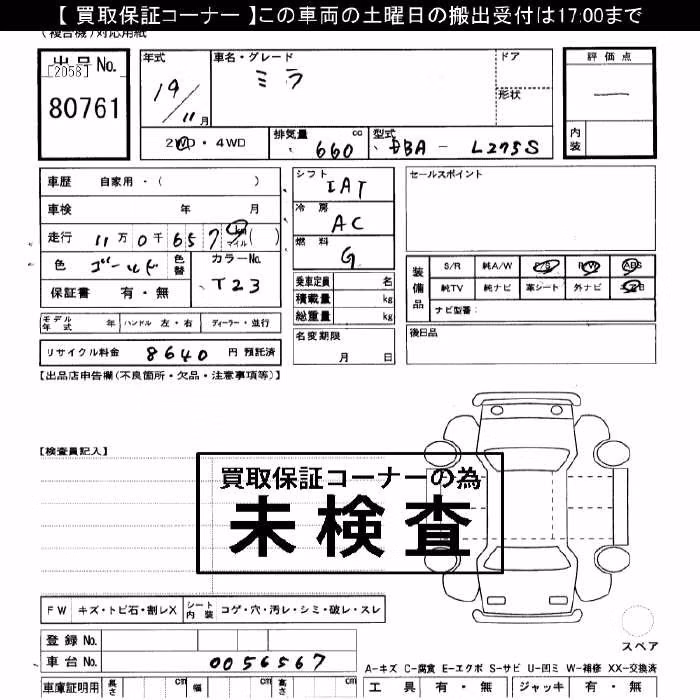 【 買取保証コーナー 】この車両の土曜日の搬出受付は17:00まで
(複合機)対応用紙
出品No. [2058] 80761
年式 19/11月
車名・グレード ミラ
ドア
形状
評価点 —
内装
2WD・4WD
排気量 660 cc
型式 DBA - L275S
車歴 自家用・( )
車検 年 月
走行 11万0千657 km マイル ( )
色 ゴールド 色替
カラーNo. T23
保証書 有・無
シフト IAT
冷房 AC
燃料 G
乗車定員 名
積載量 kg
総重量 kg
セールスポイント
装備品 S/R 純A/W P/S P/W ABS
純TV 純ナビ 革シート 外ナビ エアB
ナビ型番:
モデル年式 年 ハンドル 左・右 ディーラー・並行
名変期限 月 日
後日品
リサイクル料金 8640 円 預託済
【出品店申告欄(不良箇所・欠品・注意事項等)】
【検査員記入】
買取保証コーナーの為
未検査
FW キズ・トビ石・割レX シート内装 コゲ・穴・汚レ・シミ・破レ・スレ
スペア
登録No.
車台No. 0056567
A-キズ C-腐食 E-エクボ S-サビ U-凹ミ W-補修 XX-交換済
車庫証明用 長さ cm 幅 cm 高さ cm
工具 有・無 ジャッキ 有・無